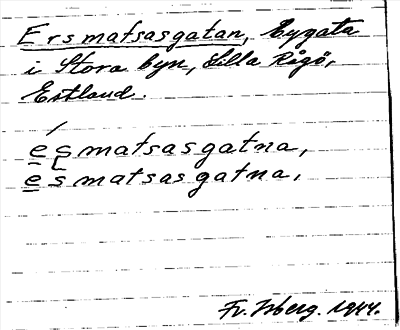 Ersmatsasgatan, bygata
i Stora byn, Lilla Rågö,
Estland.
é̱s̨matsasgatna,
e̱s̱matsasgatna.
Fr. Isberg. 1944.